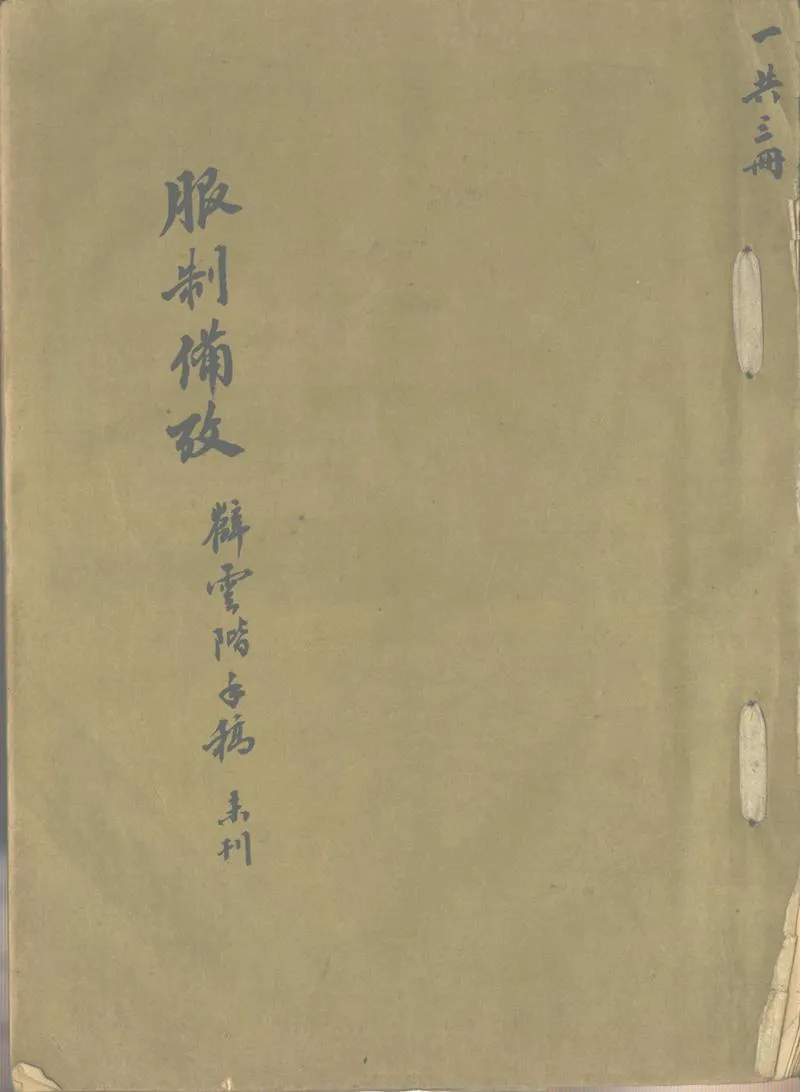 一共三冊
服制備攷
薛雲階手稿 未刊